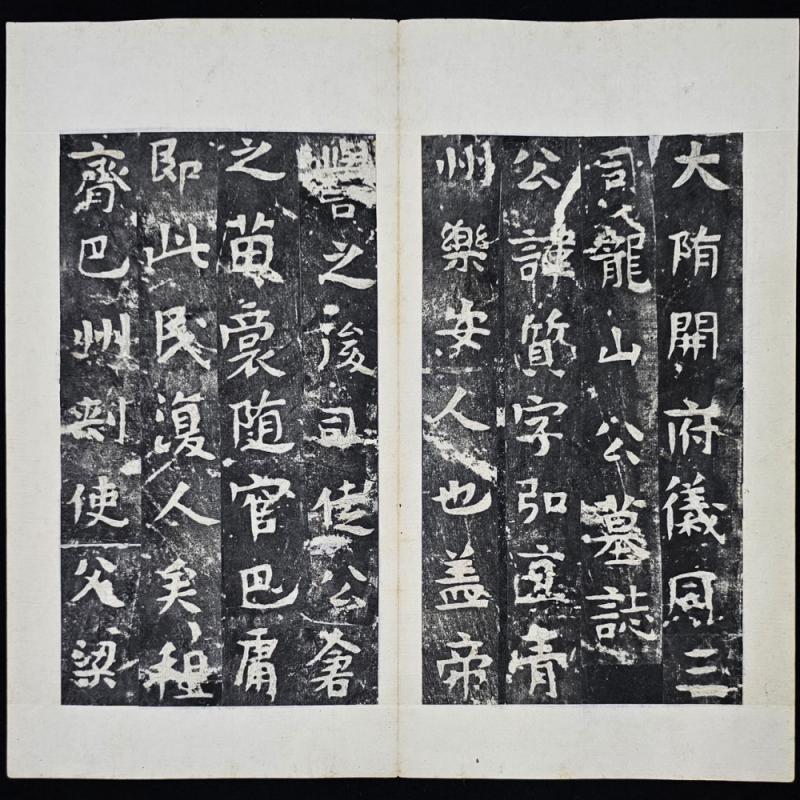 大陏開府儀同三
司龍山公墓誌
公諱質字弘直青
州樂安人也盖帝
嚳之後司徒公倉
之苗裔随官巴庸
即此民復人矣祖
齊巴州刾使父梁